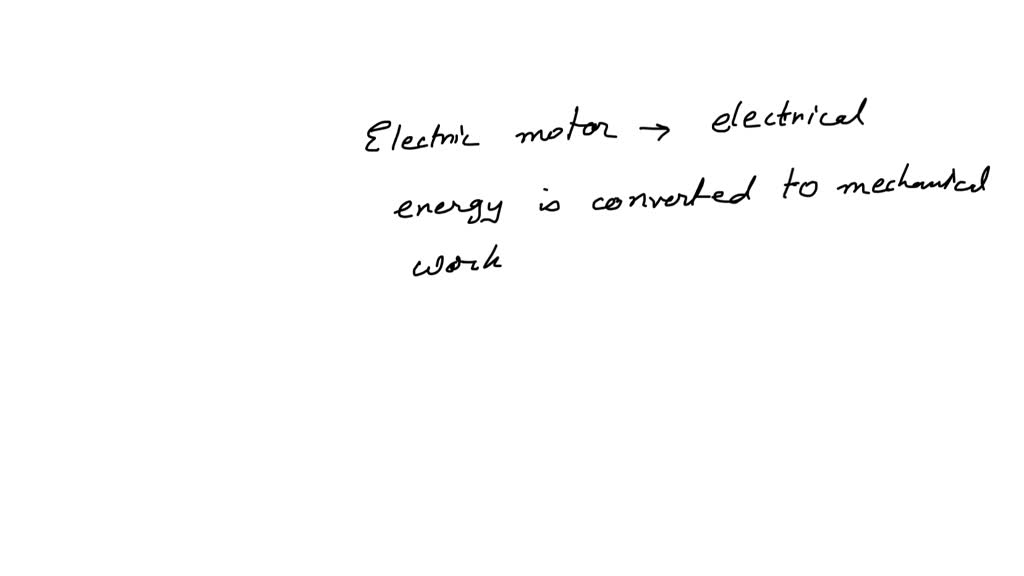 Electric motor → electrical
energy is converted to mechanical
work